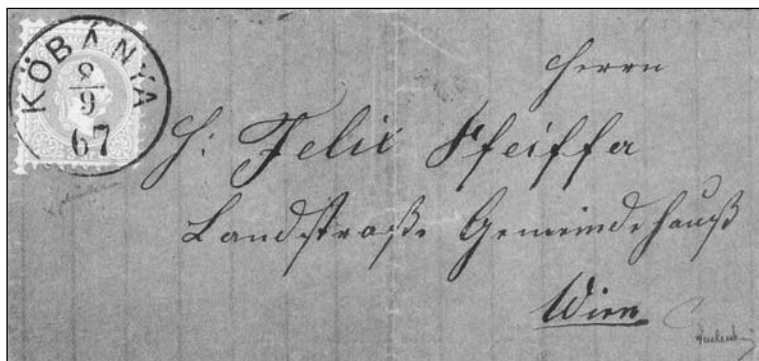 KÖBÁNYA
8
9
67
Herrn
H: Felix Pfeiffer
Landstraße Gemeindehauß
Wien